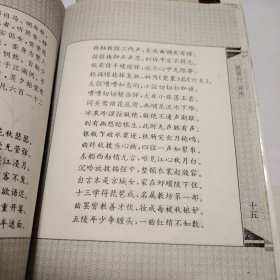 司马，明年
六百一十二
秋瑟瑟。
无管弦。
江浸月。
欲语迟。
重开宴。
半遮面。
转轴拨弦三两声，未成曲调先有情。
弦弦掩抑声声思，似诉平生不得志。
低眉信手续续弹，说尽心中无限事。
轻拢慢捻抹复挑，初为《霓裳》后《六幺》。
大弦嘈嘈如急雨，小弦切切如私语。
嘈嘈切切错杂弹，大珠小珠落玉盘。
间关莺语花底滑，幽咽泉流冰下难。
冰泉冷涩弦凝绝，凝绝不通声暂歇。
别有幽愁暗恨生，此时无声胜有声。
银瓶乍破水浆迸，铁骑突出刀枪鸣。
曲终收拨当心画，四弦一声如裂帛。
东船西舫悄无言，唯见江心秋月白。
沉吟放拨插弦中，整顿衣裳起敛容。
自言本是京城女，家在虾蟆陵下住。
十三学得琵琶成，名属教坊第一部。
曲罢曾教善才伏，妆成每被秋娘妒。
五陵年少争缠头，一曲红绡不知数。
十五